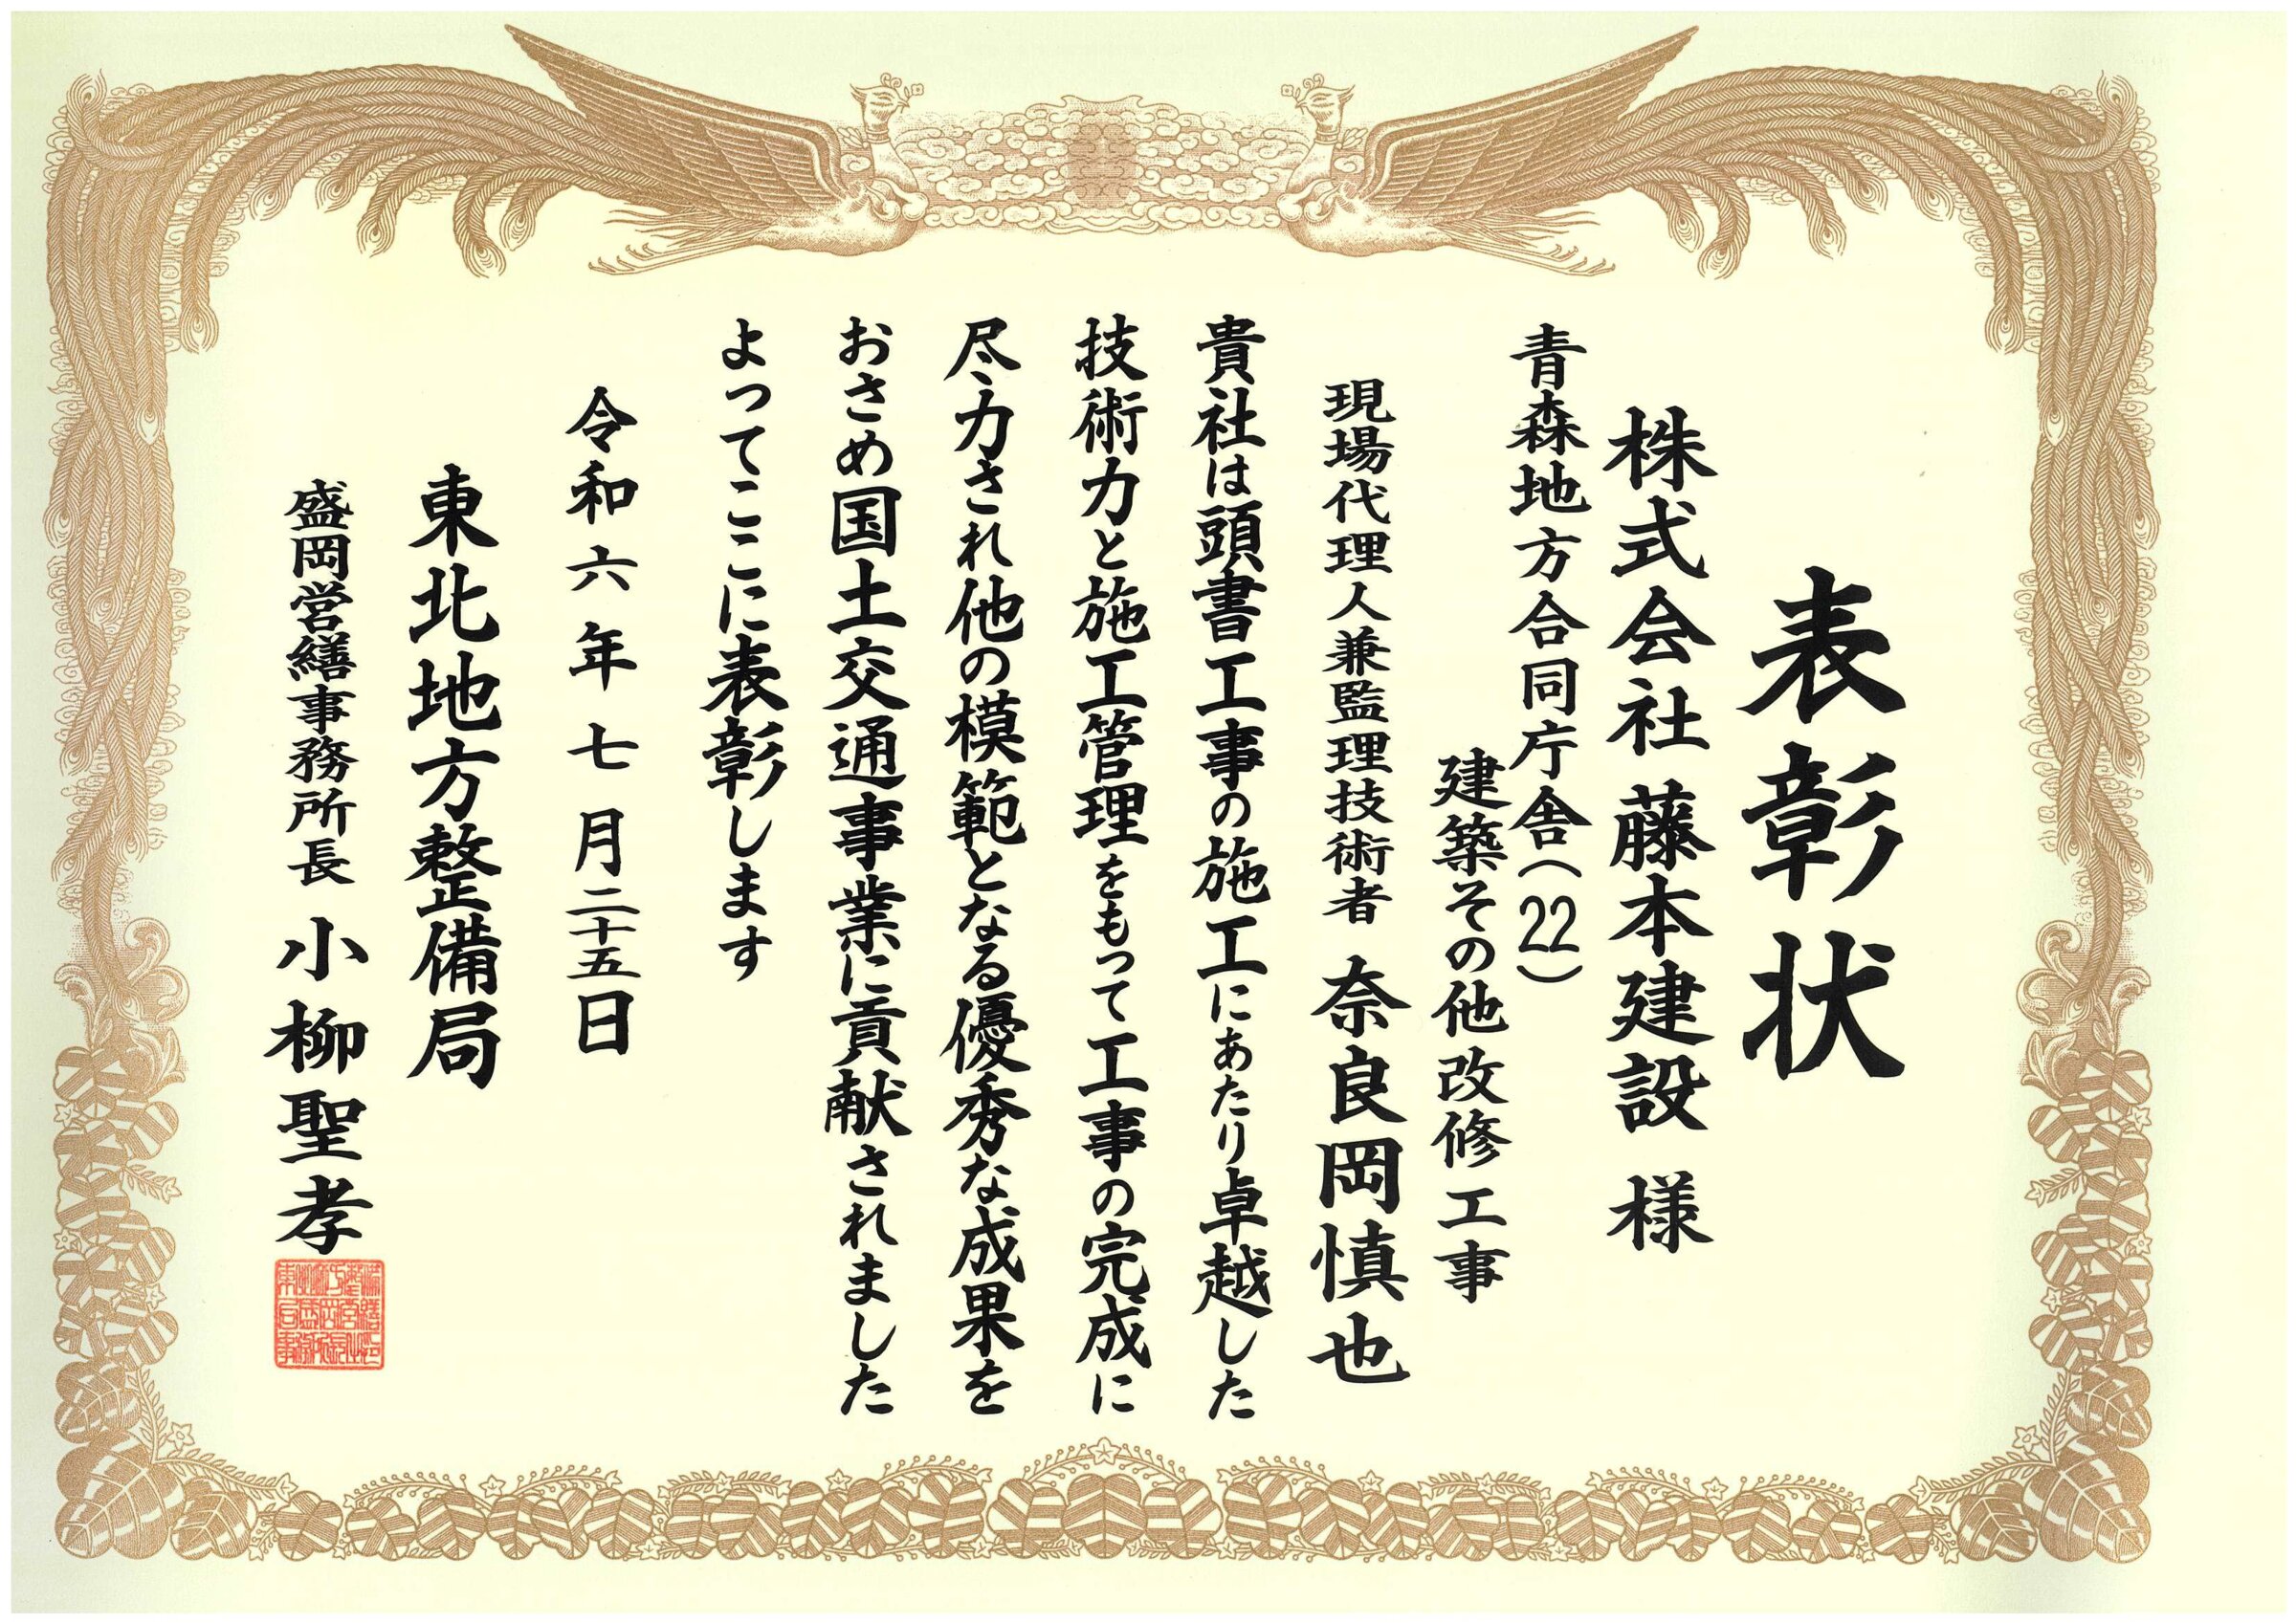 表彰状
株式会社 藤本建設 様
青森地方合同庁舎(22)
建築その他改修工事
現場代理人兼監理技術者 奈良岡慎也
貴社は頭書工事の施工にあたり卓越した
技術力と施工管理をもって工事の完成に
尽力され他の模範となる優秀な成果を
おさめ国土交通事業に貢献されました
よってここに表彰します
令和六年七月二十五日
東北地方整備局
盛岡営繕事務所長 小柳聖孝